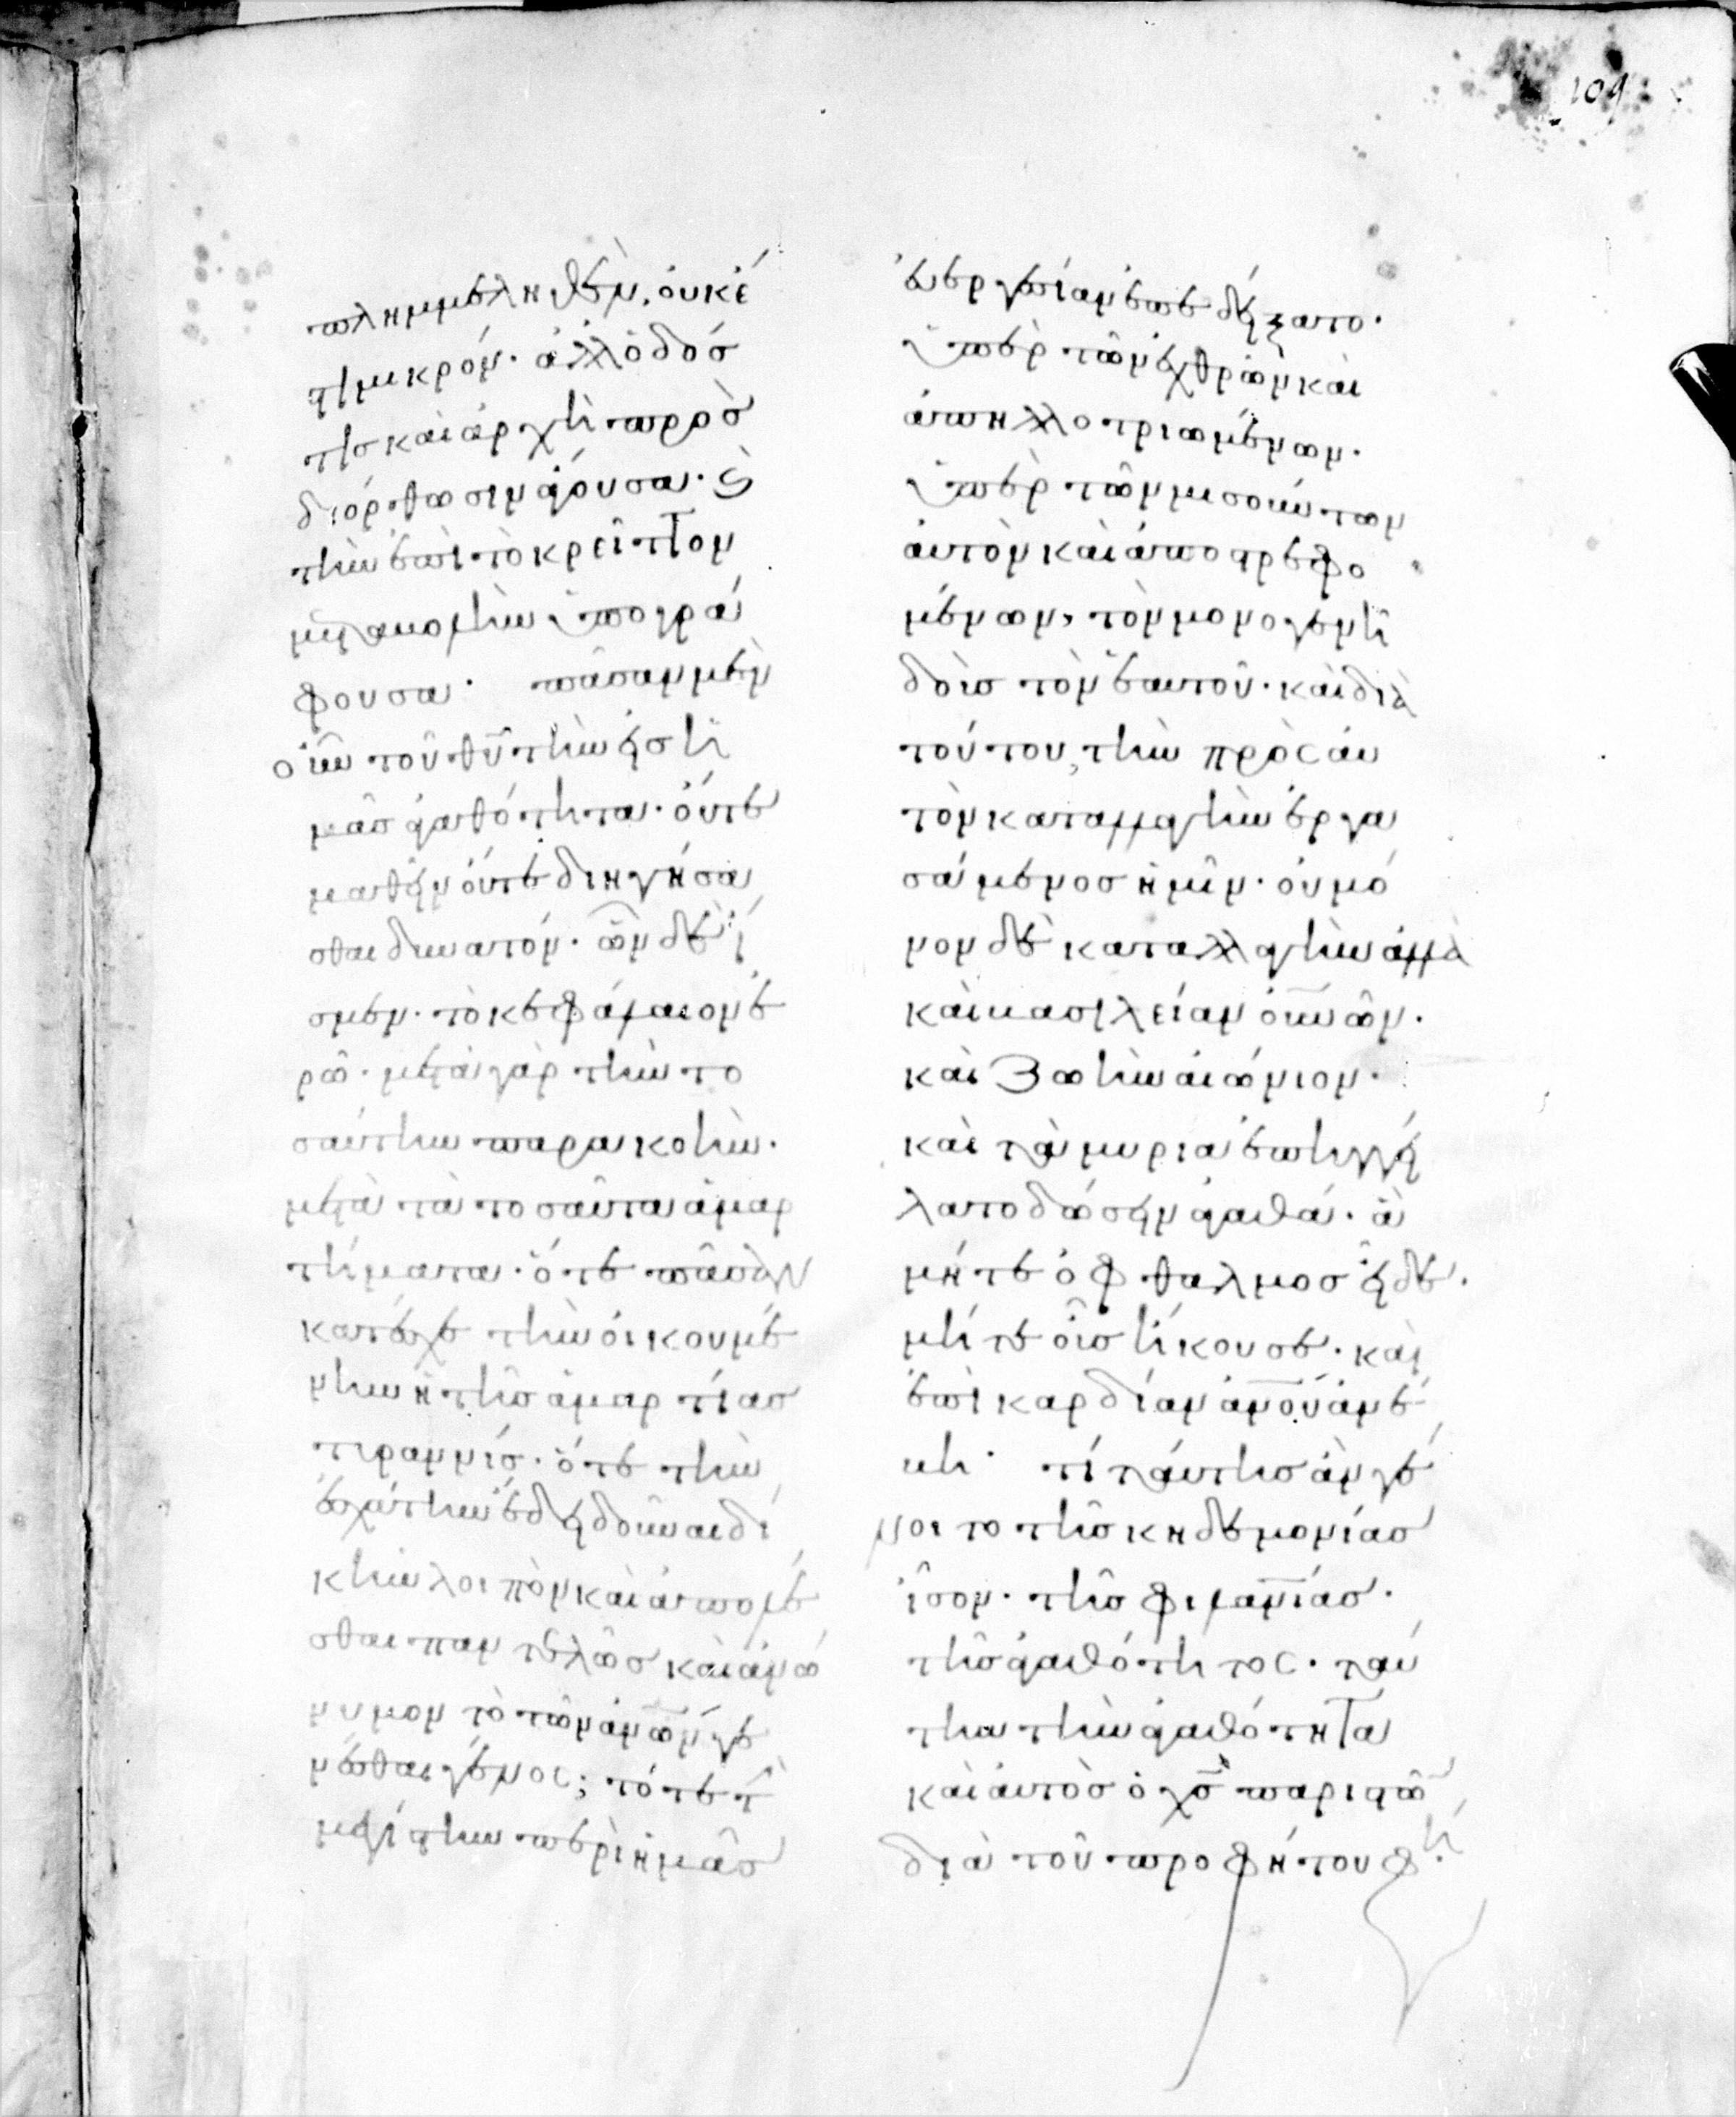 109
πλημμεληθὲν, οὐκ ἔ
τι μικρόν· ἀλλ ὁδός
τις καὶ ἀρχὴ πρὸς
διόρθωσιν ἄγουσα· καὶ
τὴν ἐπὶ τὸ κρεῖττον
μεταβολὴν ὑπογρά
φουσα· πᾶσαν μὲν
οὖν τοῦ θυ τὴν εἰς ἡ
μᾶς ἀγαθότητα· οὔτε
μαθεῖν οὔτε διηγήσα
σθαι δυνατόν· ὧν δὲ ἴ
σμεν· τὸ κεφάλαιον ἐ
ρῶ· μετὰ γὰρ τὴν το
σαύτην παρακοὴν·
μετὰ τὰ τοσαῦτα ἁμαρ
τήματα· ὅτε πᾶσαν
κατεῖχε τὴν οἰκουμέ
νην ἡ τῆς ἁμαρτίας
τυραννίς· ὅτε τὴν
ἐσχάτην ἔδει δοῦναι δί
κην λοιπὸν καὶ ἀπολέ
σθαι παντελῶς καὶ ἀνώ
νυμον τὸ τῶν ἀνων γε
νέσθαι γένος; τότε τὴν
μεγίστην περὶ ἡμᾶς
εὐεργεσίαν ἐπεδείξατο·
ὑπὲρ τῶν ἐχθρῶν καὶ
ἀπηλλοτριωμένων·
ὑπὲρ τῶν μισούντων
αὐτὸν καὶ ἀποστρεφο
μένων, τὸν μονογενῆ
δοὺς τὸν ἑαυτοῦ· καὶ διὰ
τούτου, τὴν πρὸς αὐ
τὸν καταλλαγὴν ἐργα
σάμενος ἡμῖν· οὐ μό
νον δὲ καταλλαγὴν ἀλλὰ
καὶ βασιλείαν οὐνῶν·
καὶ ζωὴν αἰώνιον·
καὶ τὰ μυρία ἐπηγγεί
λατο δώσειν ἀγαθά· ἃ
μήτε ὀφθαλμος εἶδε·
μήτε οὖς ἤκουσε· καὶ
ἐπὶ καρδίαν ἀνου ἀνέ
βη· τί ταύτης ἂν γέ
νοιτο τῆς κηδεμονίας
ἴσον· τῆς φιλανίας·
τῆς ἀγαθότητος· ταύ
την τὴν ἀγαθότητα
καὶ αὐτὸς ὁ χς παριστῶν
διὰ τοῦ προφήτου φη